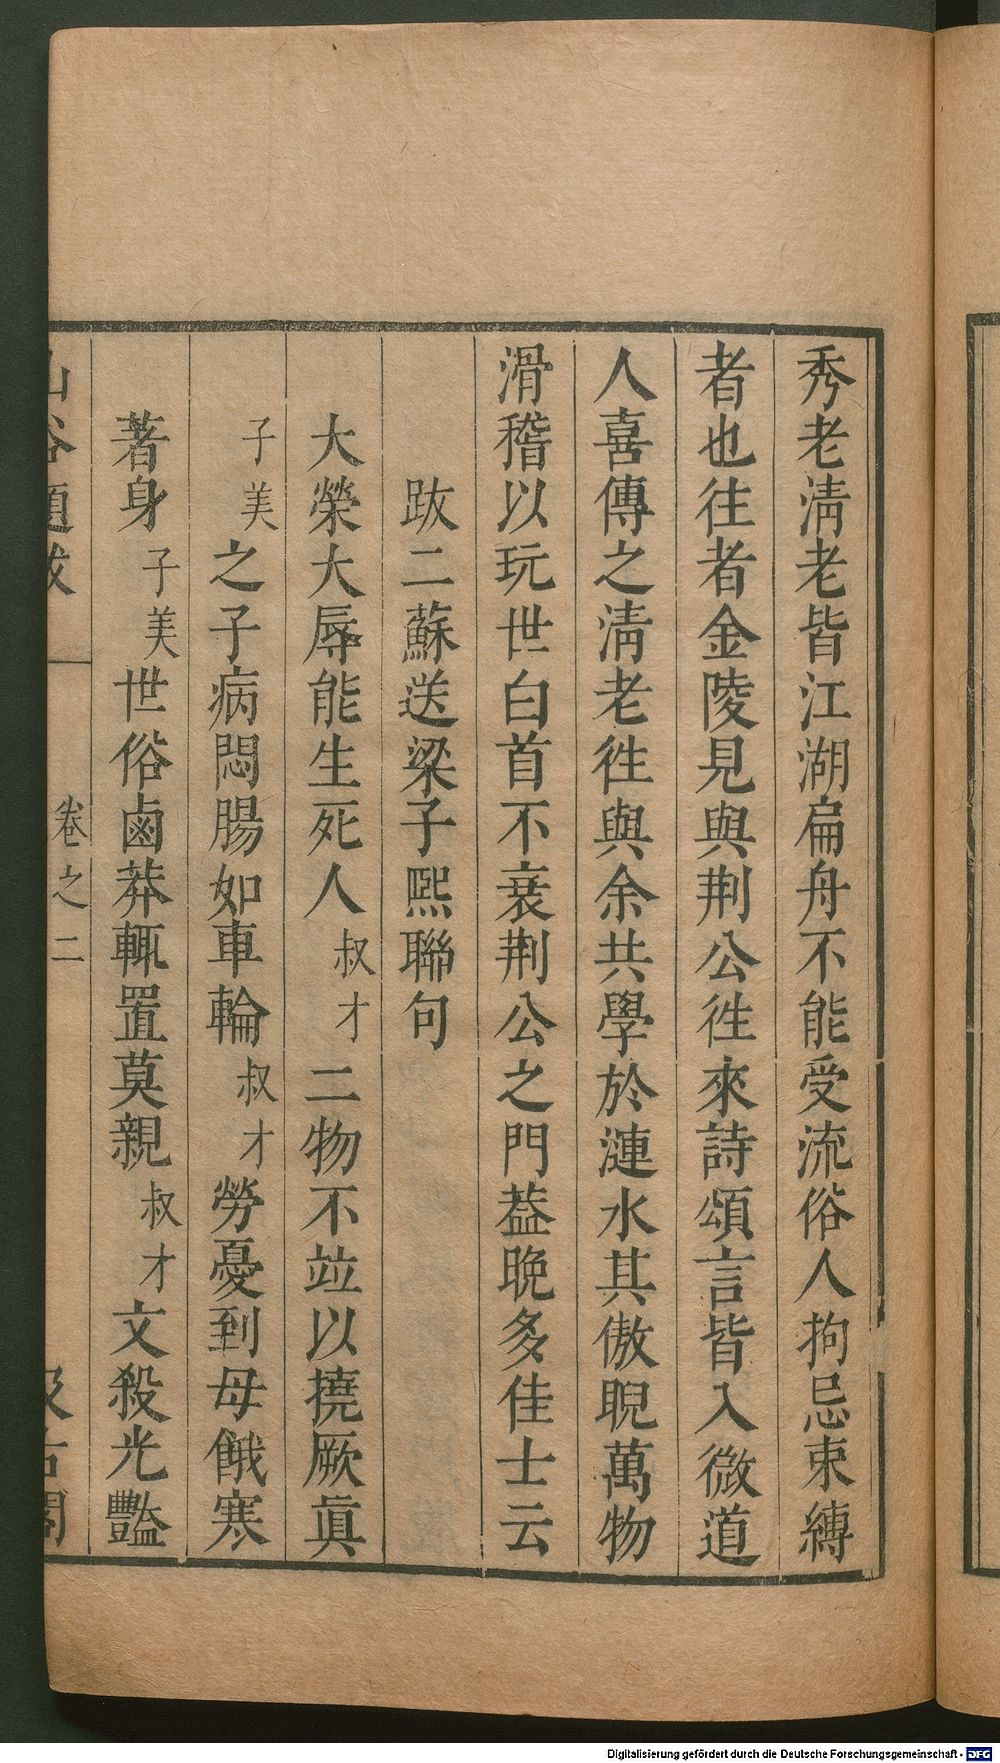 秀老淸老皆江湖扁舟不能受流俗人拘忌束縛
者也往者金陵見與荆公徃來詩頌言皆入微道
人喜傳之淸老徃與余共學於漣水其傲睨萬物
滑稽以玩世白首不衰荆公之門葢晚多佳士云
跋二蘇送梁子熙聯句
大榮大辱能生死人叔才二物不竝以撓厥眞
子美之子病悶腸如車輪叔才勞憂到母餓寒
著身子美世俗鹵莽輒置莫親叔才文殺光豔
山谷題跋 卷之二 汲古閣
Digitalisierung gefördert durch die Deutsche Forschungsgemeinschaft - DFG